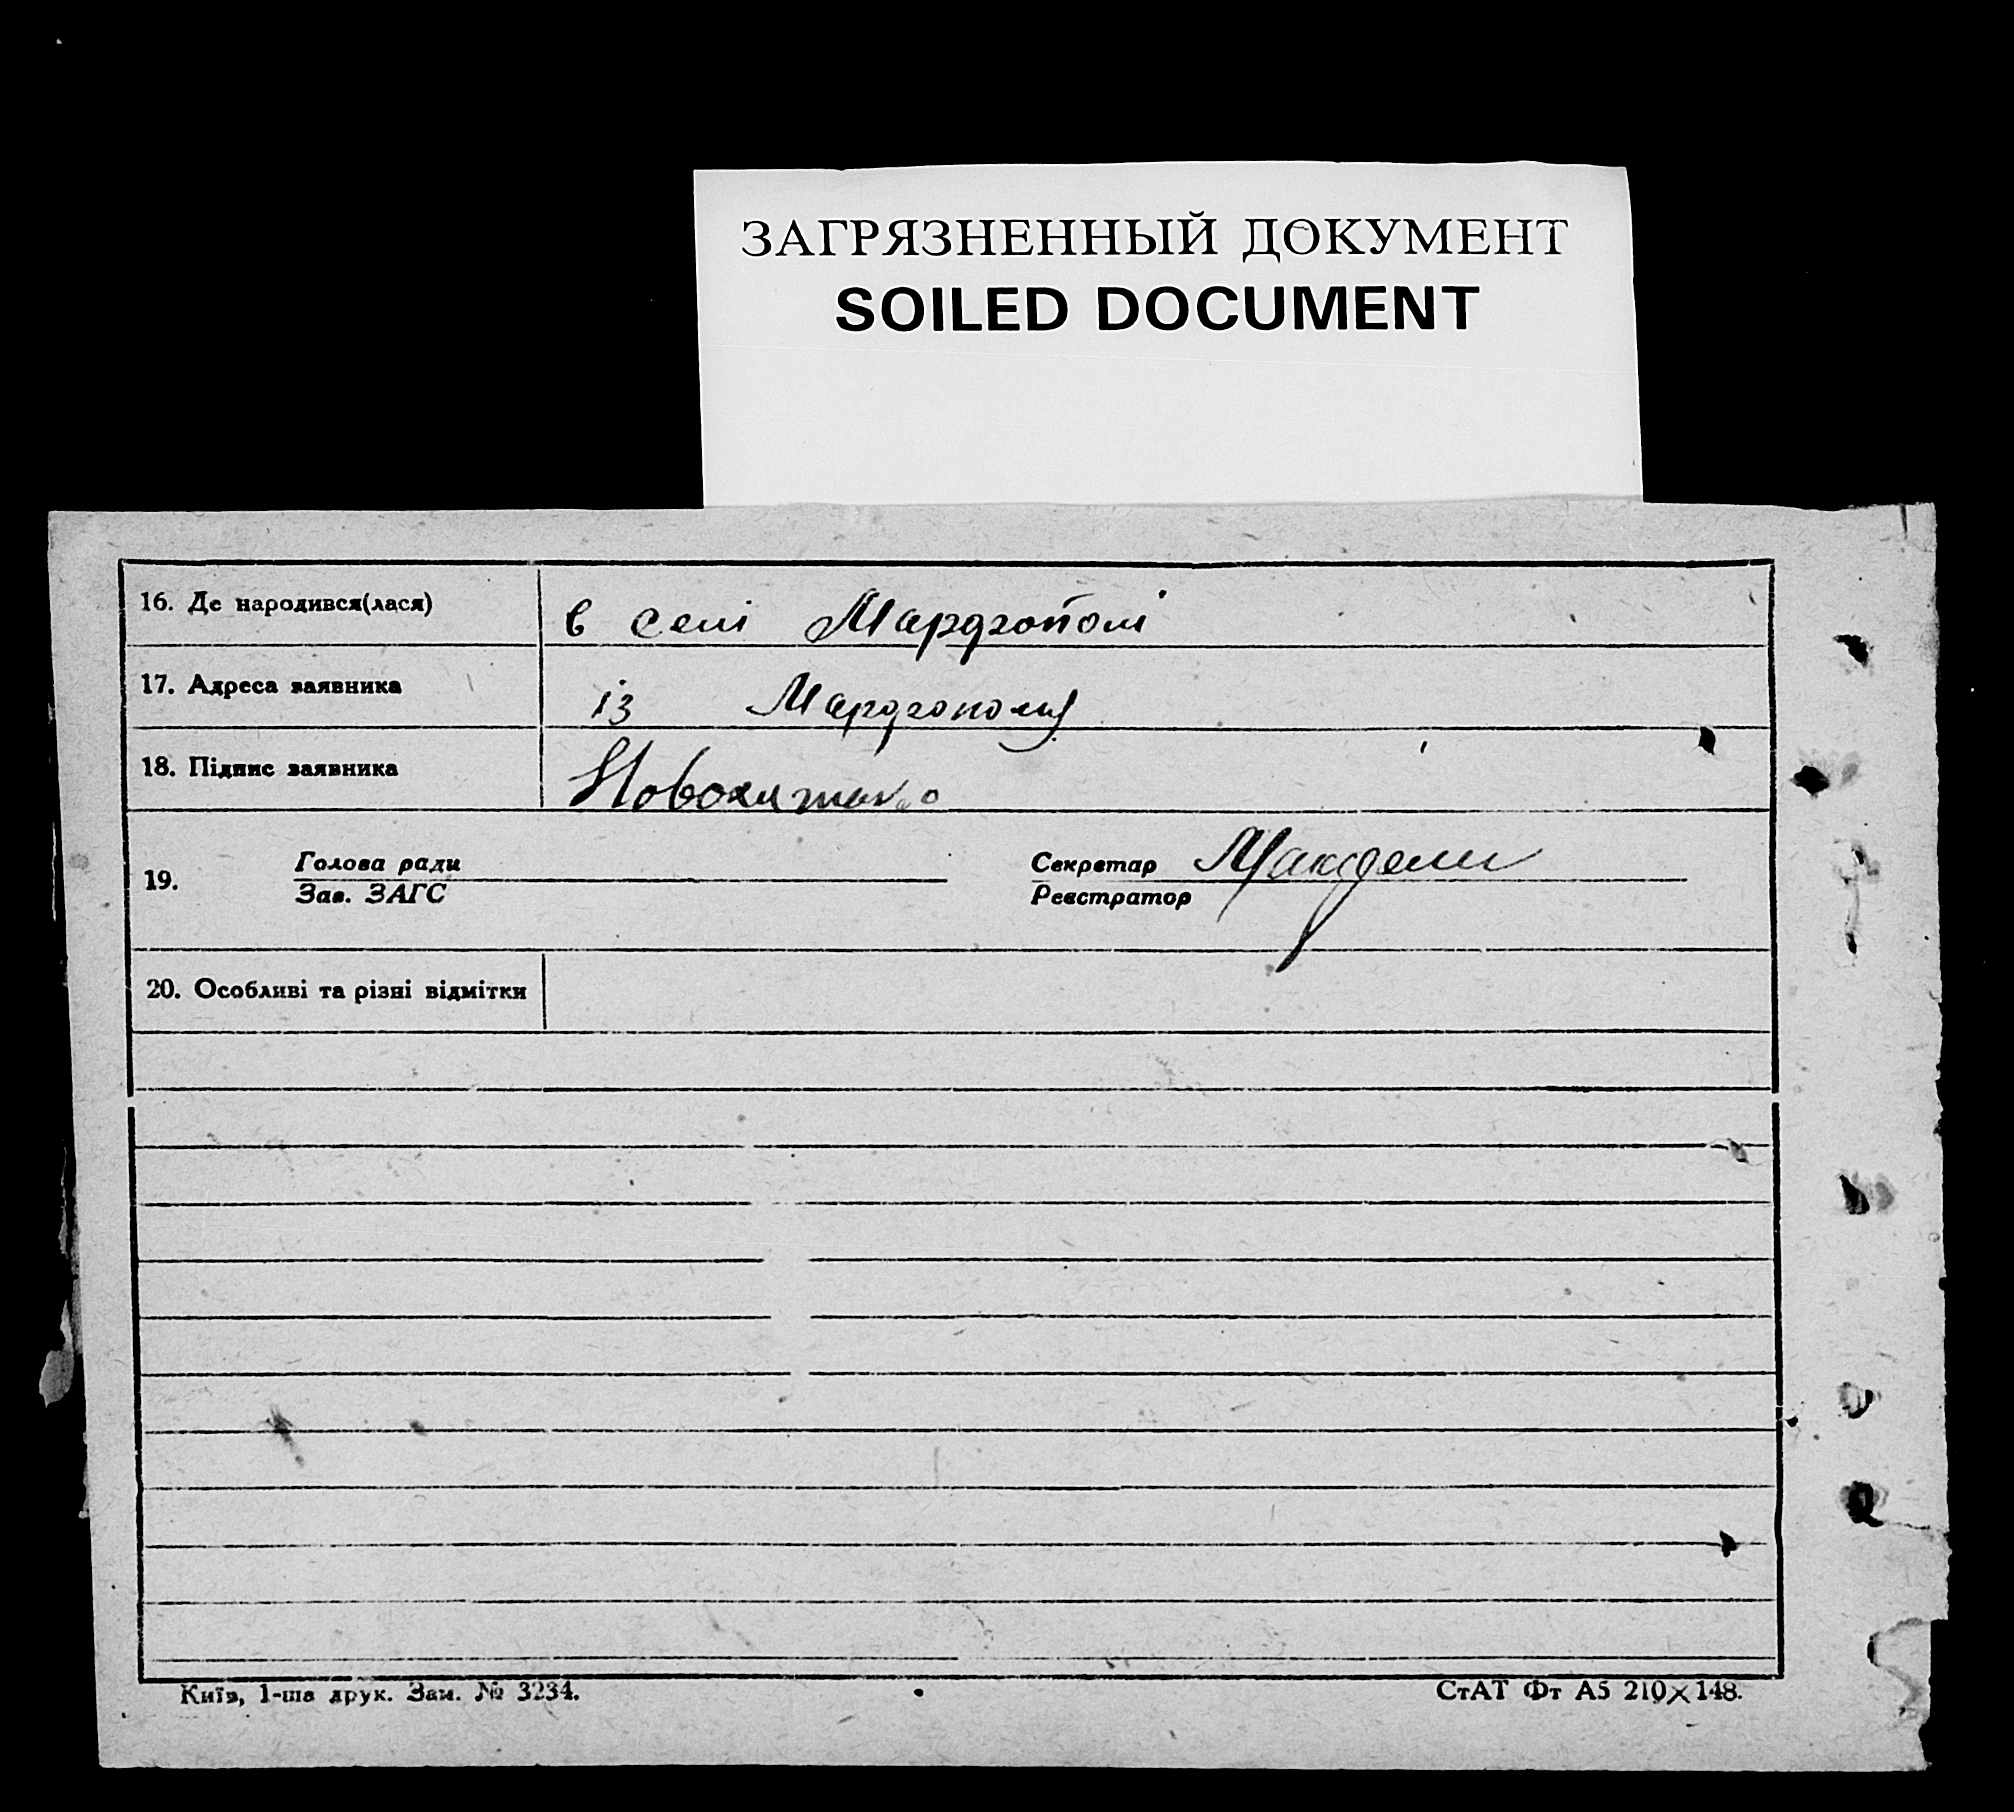 ЗАГРЯЗНЕННЫЙ ДОКУМЕНТ
SOILED DOCUMENT
16. Де народився(лася) в селі Мардгополі
17. Адреса заявника із Мардгополя
18. Підпис заявника
19. Голова ради Секретар
Зав. ЗАГС Реєстратор
20. Особливі та різні відмітки
Київ, 1-ша друк. Зам. № 3234. СтАТ Фт А5 210×148.